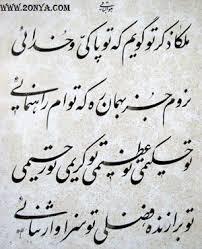 www.2ONYA.com
ملکا ذکر تو گویم که تو پاکی و خدائی
نروم جز بهمان ره که توام راهنمائی
تو حکیمی تو عظیمی تو کریمی تو رحیمی
تو برازنده فضلی تو سزاوار ثنائی